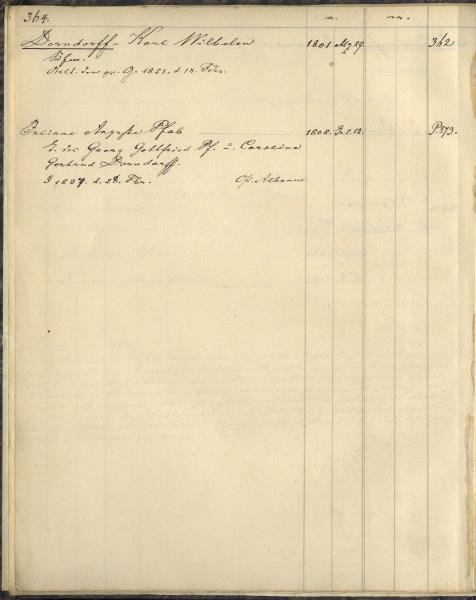 364. n. m.
Dorndorff - Karl Wilhelm 1801 Mz 29. 362
Kfm.
Aelt. der gr. G. 1851. d. 14. Febr.
Juliane Auguste Pfab 1808. Jul. 12. P373.
T. des Georg Gottfried Pf. u. Carolina
Gertrud Dorndorff.
d. 28. Febr. Albanus